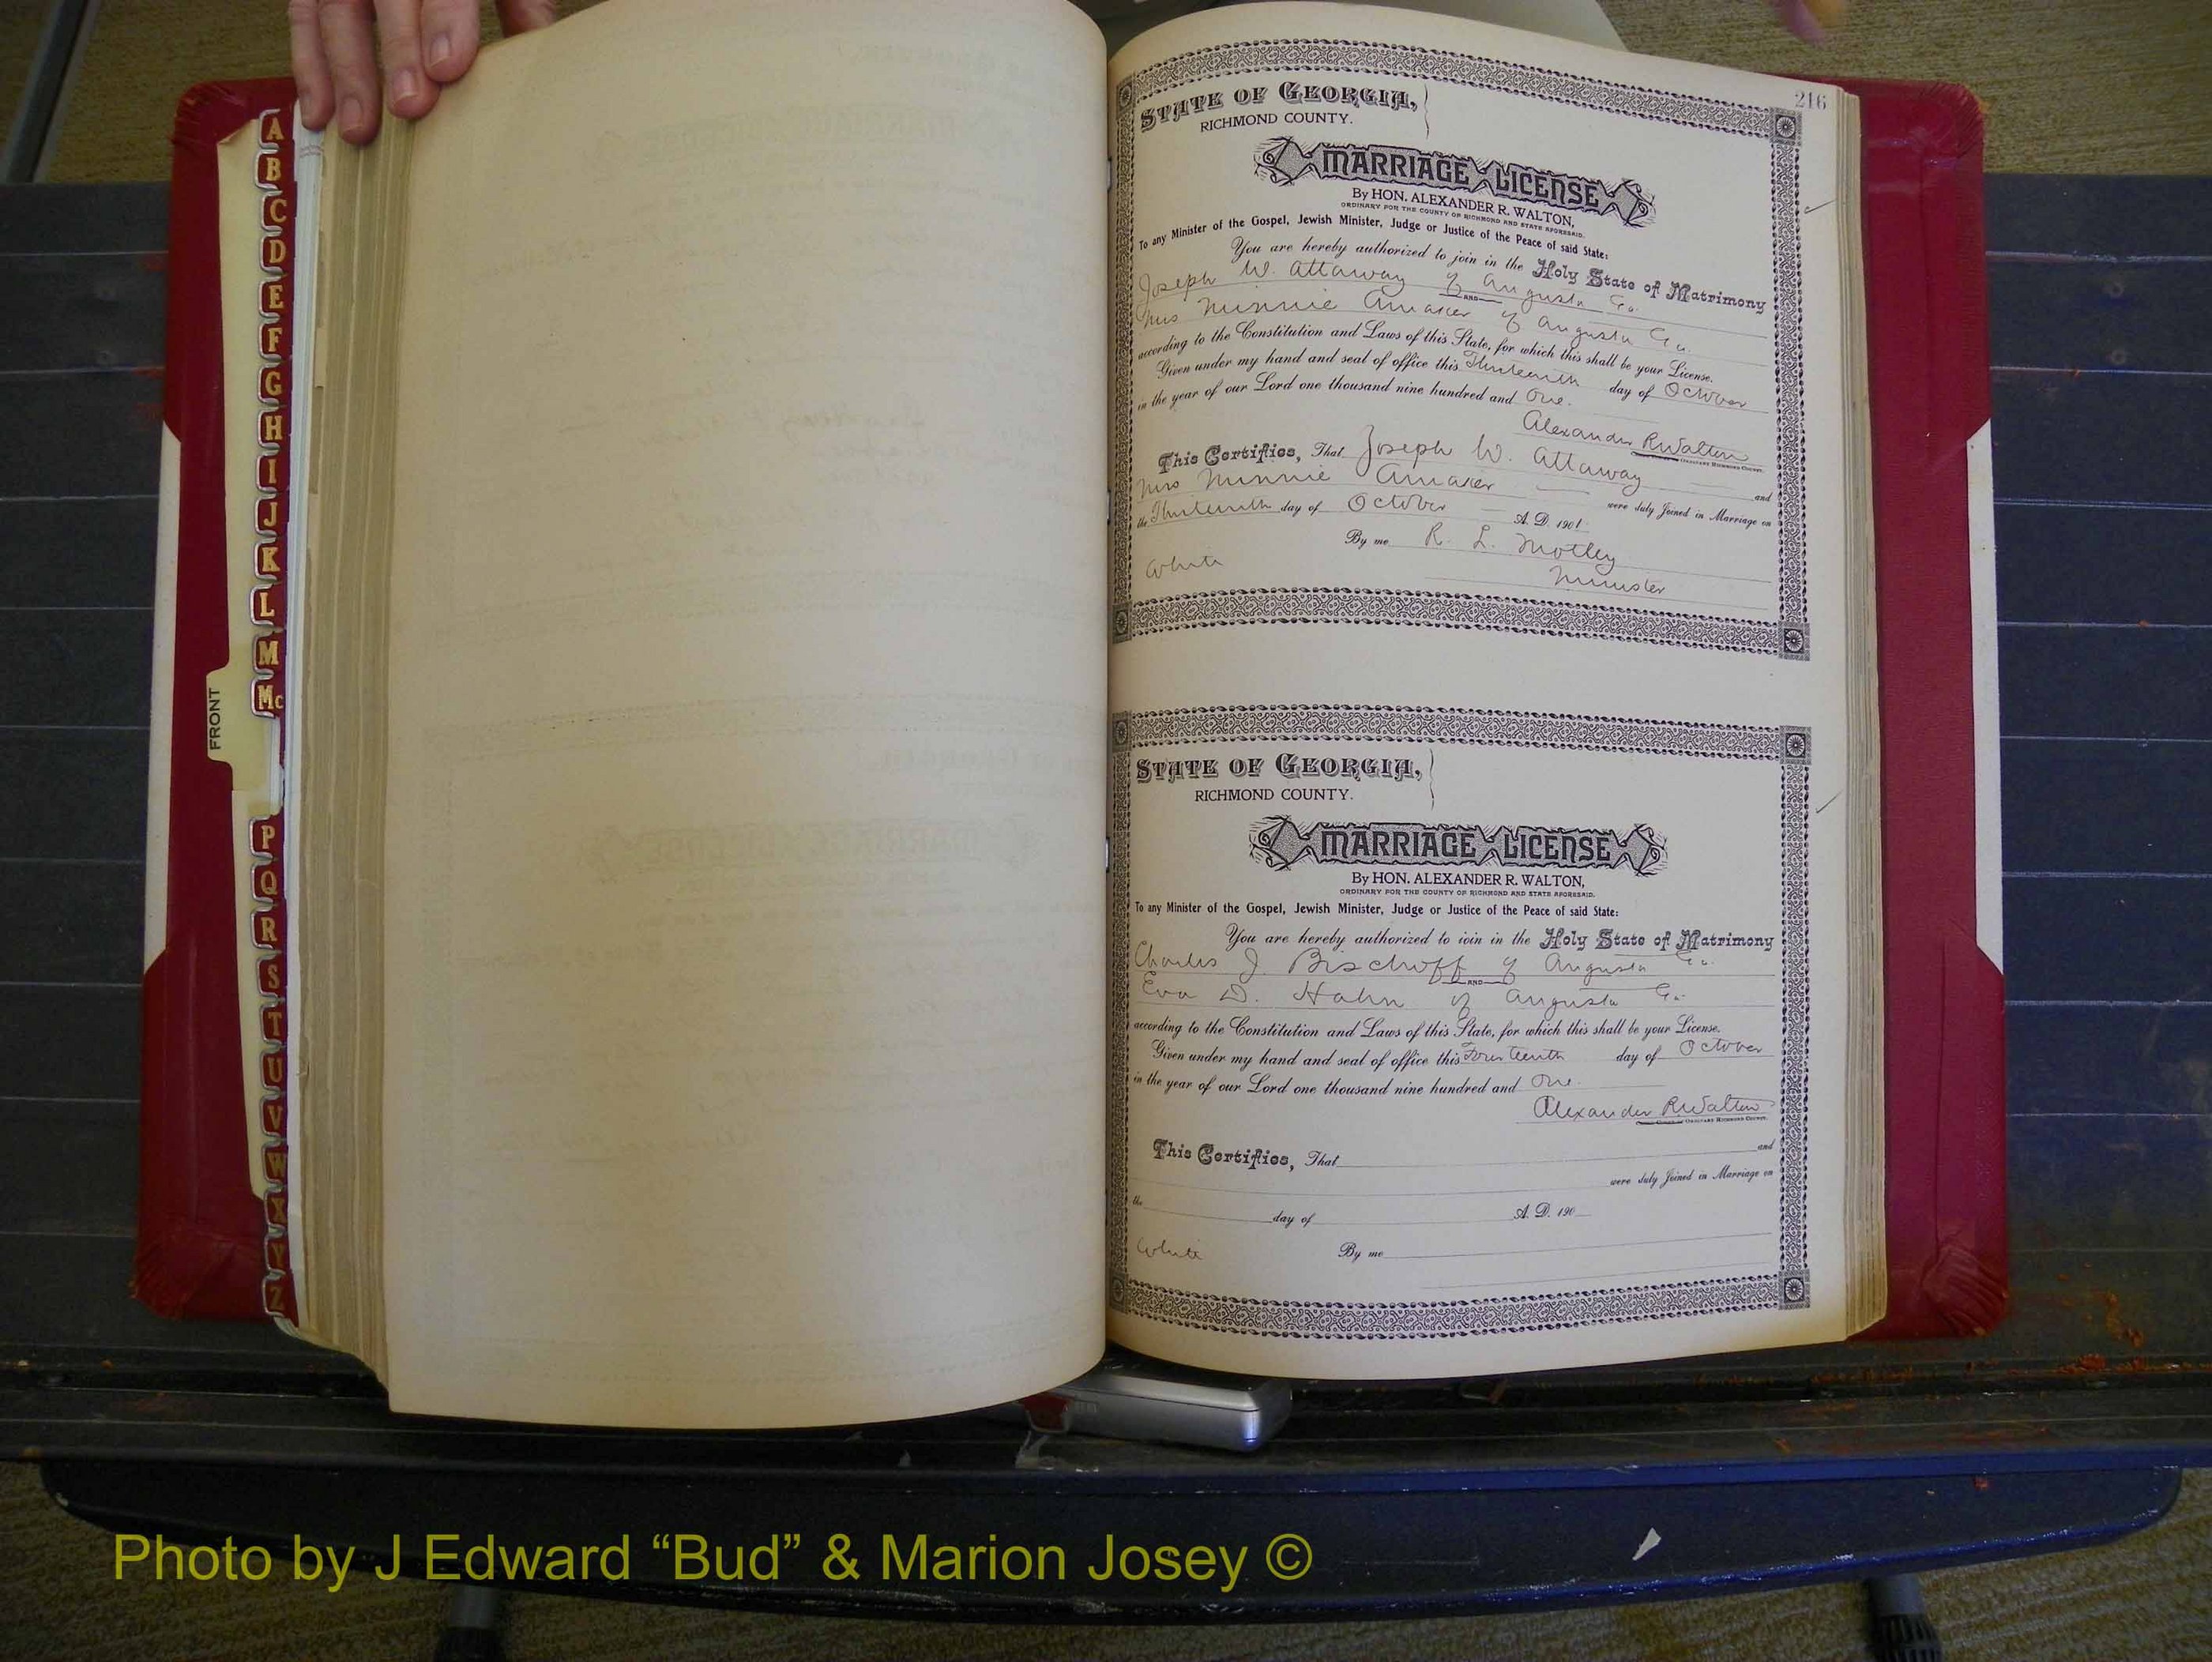 A
B
C
D
E
F
G
H
I
J
K
L
M
Mc
FRONT
P
Q
R
S
T
U
V
W
X
Y
Z
216
STATE OF GEORGIA,
RICHMOND COUNTY.
MARRIAGE LICENSE
By HON. ALEXANDER R. WALTON,
ORDINARY FOR THE COUNTY OF RICHMOND AND STATE AFORESAID.
To any Minister of the Gospel, Jewish Minister, Judge or Justice of the Peace of said State:
You are hereby authorized to join in the Holy State of Matrimony
Joseph W. Attaway of Augusta Ga.
AND
Mrs Minnie Amaker of Augusta Ga.
according to the Constitution and Laws of this State, for which this shall be your License.
Given under my hand and seal of office this Thirteenth day of October
in the year of our Lord one thousand nine hundred and One.
Alexander R Walton
ORDINARY RICHMOND COUNTY.
This Certifies, That Joseph W. Attaway and
Mrs Minnie Amaker were duly Joined in Marriage on
the Thirteenth day of October A. D. 1901
By me R. L. Motley
White Minister
STATE OF GEORGIA,
RICHMOND COUNTY.
MARRIAGE LICENSE
By HON. ALEXANDER R. WALTON,
ORDINARY FOR THE COUNTY OF RICHMOND AND STATE AFORESAID.
To any Minister of the Gospel, Jewish Minister, Judge or Justice of the Peace of said State:
You are hereby authorized to join in the Holy State of Matrimony
Charles J. Bischoff of Augusta Ga.
AND
Eva D. Hahn of Augusta Ga.
according to the Constitution and Laws of this State, for which this shall be your License.
Given under my hand and seal of office this Fourteenth day of October
in the year of our Lord one thousand nine hundred and One.
Alexander R Walton
ORDINARY RICHMOND COUNTY.
This Certifies, That and
were duly Joined in Marriage on
the day of A. D. 190
White By me
Photo by J Edward “Bud” & Marion Josey ©